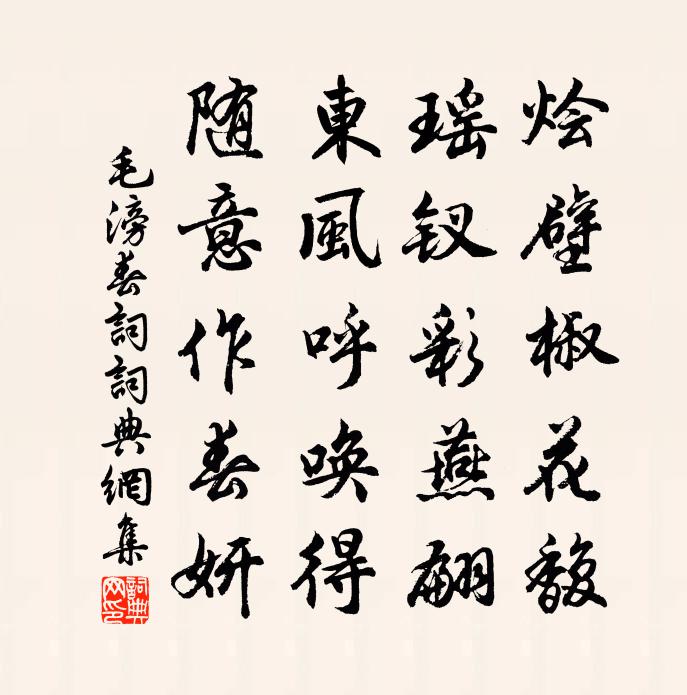 烩壁椒花馥
瑶钗彩燕翩
東風呼唤得
随意作春妍
毛滂春詞詞典網集
詞典網印